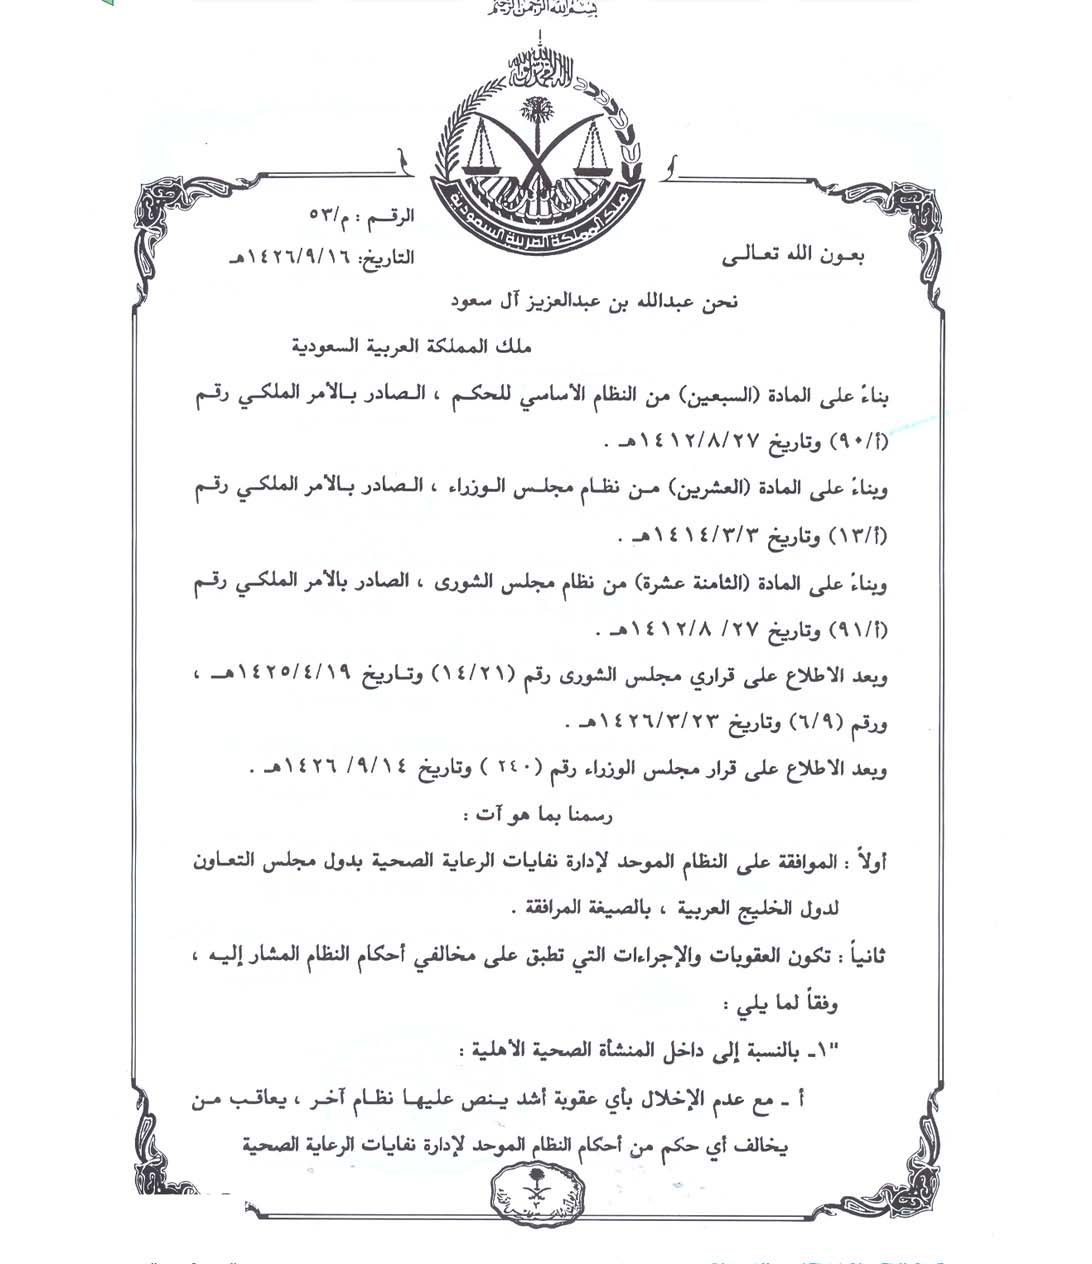 بسم الله الرحمن الرحيم
ملك المملكة العربية السعودية
الرقـم : م/٥٣
التاريخ: ١٤٢٦/٩/١٦هـ
بعـون الله تعـالـى
نحن عبدالله بن عبدالعزيز آل سعود
ملك المملكة العربية السعودية
بناءً على المادة (السبعين) من النظام الأساسي للحكـم ، الـصادر بـالأمر الملكـي رقـم
(أ/٩٠) وتاريخ ١٤١٢/٨/٢٧هـ .
وبناءً على المادة (العشرين) مـن نظـام مجلـس الـوزراء ، الـصادر بـالأمر الملكـي رقـم
(أ/١٣) وتاريخ ١٤١٤/٣/٣هـ .
وبناءً على المادة (الثامنة عشرة) من نظام مجلس الشورى ، الصادر بالأمر الملكـي رقـم
(أ/٩١) وتاريخ ٢٧/ ١٤١٢/٨هـ .
وبعد الاطلاع على قراري مجلس الشورى رقم (١٤/٢١) وتـاريخ ١٤٢٥/٤/١٩هـ ،
ورقم (٦/٩) وتاريخ ١٤٢٦/٣/٢٣هـ .
وبعد الاطلاع على قرار مجلس الوزراء رقم (٢٤٠ ) وتاريخ ٩/١٤/ ١٤٢٦هـ .
رسمنا بما هو آت :
أولاً : الموافقة على النظام الموحد لإدارة نفايات الرعاية الصحية بدول مجلس التعـاون
لدول الخليج العربية ، بالصيغة المرافقة .
ثانياً : تكون العقوبات والإجراءات التي تطبق على مخالفي أحكام النظام المشار إليـه ،
وفقاً لما يلي :
"١ـ بالنسبة إلى داخل المنشأة الصحية الأهلية :
أ ـ مع عدم الإخلال بأي عقوبة أشد ينص عليهـا نظـام آخـر ، يعاقـب مـن
يخالف أي حكم من أحكام النظام الموحد لإدارة نفايات الرعاية الصحية